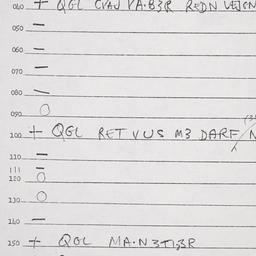 040 + QGL CVAJ VA·B3R REDN VEJCN
050 –
060 –
070 –
080 –
090 O
100 + QGL RET VUS M3 DARF
110 –
111 –
120 O
130 O
140 –
150 + QGL MA·N3TI;3R